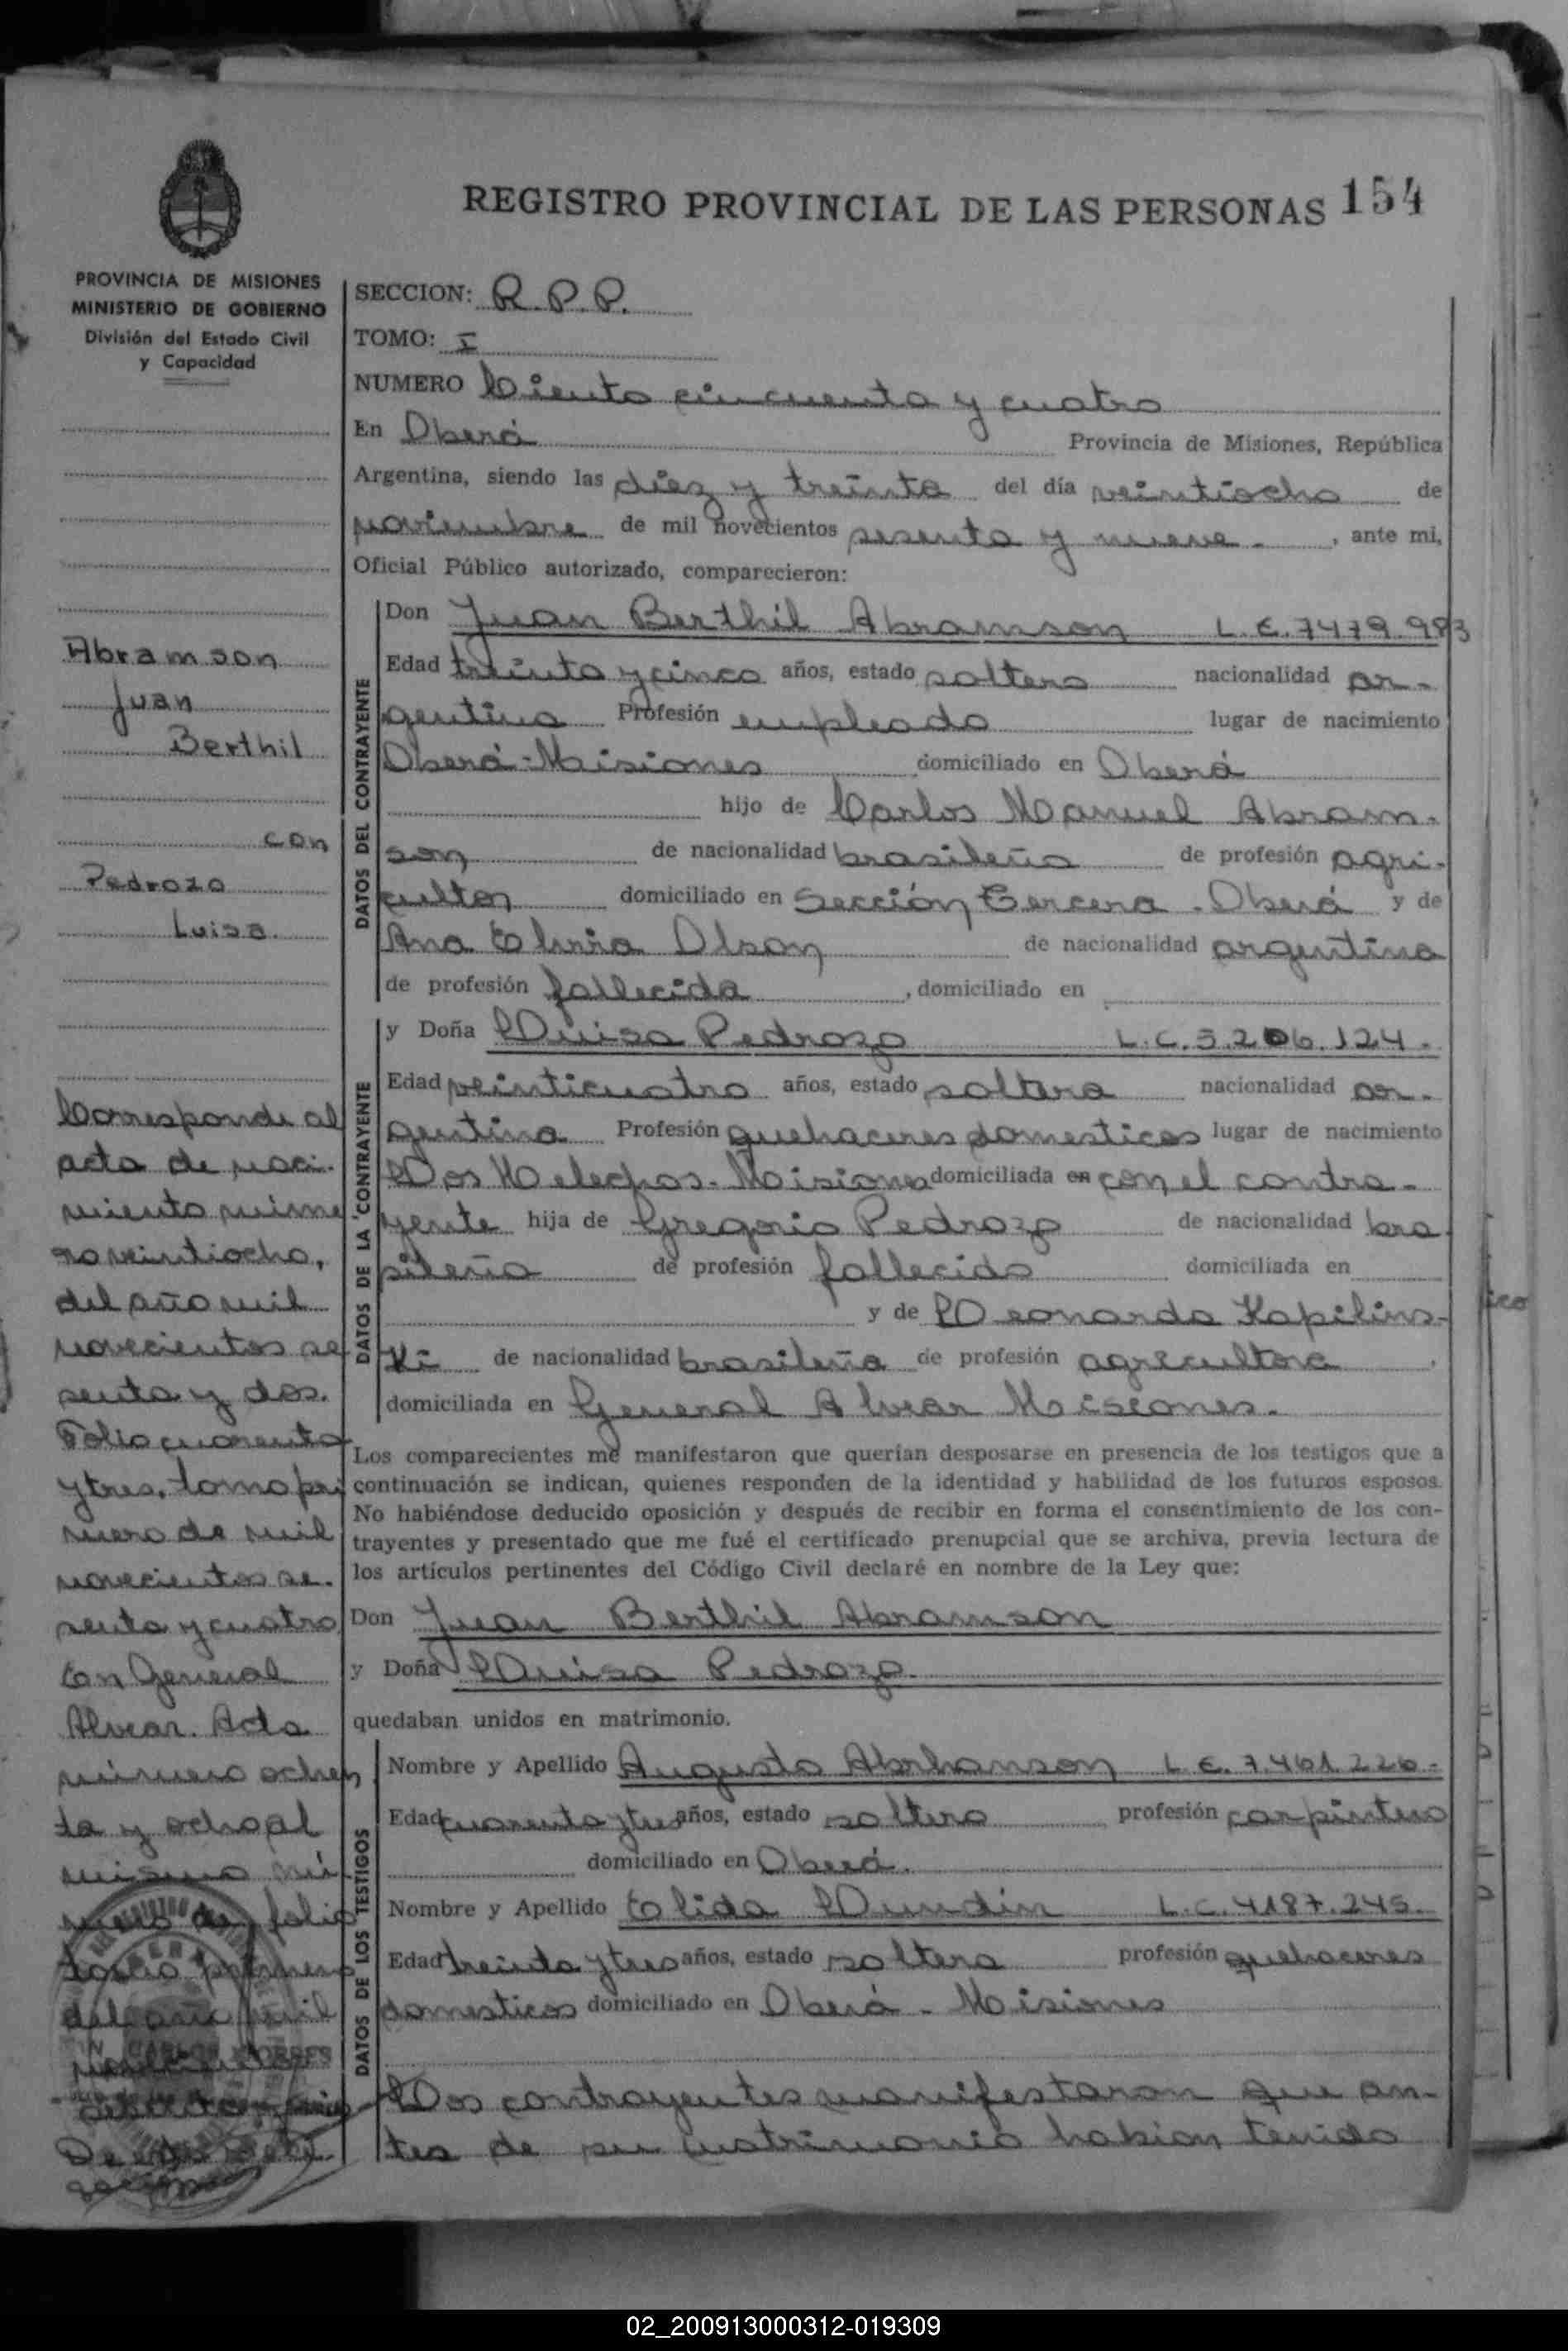 REGISTRO PROVINCIAL DE LAS PERSONAS 154
PROVINCIA DE MISIONES
MINISTERIO DE GOBIERNO
División del Estado Civil
y Capacidad
SECCION: R.P.P.
TOMO: I
NUMERO Ciento cincuenta y cuatro
En Oberá Provincia de Misiones, República
Argentina, siendo las diez y treinta del día veintiocho de
noviembre de mil novecientos sesenta y nueve. , ante mi,
Oficial Público autorizado, comparecieron:
Abramson
Juan
Berthil
con
Pedrozo
Luisa.
DATOS DEL CONTRAYENTE
Don Juan Berthil Abramson L.E. 7479.983
Edad treinta y cinco años, estado soltero nacionalidad ar-
gentina Profesión empleado lugar de nacimiento
Oberá-Misiones domiciliado en Oberá
hijo de Carlos Manuel Abram-
son de nacionalidad brasileña de profesión agri-
cultor domiciliado en Sección Tercera. Oberá y de
Ana Elvira Olson de nacionalidad argentina
de profesión fallecida , domiciliado en
DATOS DE LA CONTRAYENTE
y Doña Luisa Pedrozo L.C. 5.206.124.
Edad veinticuatro años, estado soltera nacionalidad ar-
gentina Profesión quehaceres domesticos lugar de nacimiento
Los Helechos. Misiones domiciliada en con el contra-
yente hija de Gregorio Pedrozo de nacionalidad bra
sileña de profesión fallecido domiciliada en
y de Leonarda Kapilins-
ki de nacionalidad brasileña de profesión agricultora ,
domiciliada en General Alvear Misiones.
Los comparecientes me manifestaron que querían desposarse en presencia de los testigos que a
continuación se indican, quienes responden de la identidad y habilidad de los futuros esposos.
No habiéndose deducido oposición y después de recibir en forma el consentimiento de los con-
trayentes y presentado que me fué el certificado prenupcial que se archiva, previa lectura de
los artículos pertinentes del Código Civil declaré en nombre de la Ley que:
Don Juan Berthil Abramson
y Doña Luisa Pedrozo.
quedaban unidos en matrimonio.
DATOS DE LOS TESTIGOS
Nombre y Apellido Augusto Abrhamson L.E. 7.461.226.
Edad cuarenta y tres años, estado soltero profesión carpintero
domiciliado en Oberá.
Nombre y Apellido Elida Lundin L.C. 4187.245.
Edad treinta y tres años, estado soltera profesión quehaceres
domesticos domiciliado en Oberá - Misiones
Los contrayentes manifestaron que an-
tes de su matrimonio habian tenido
Corresponde al
acta de naci-
miento núme
ro veintiocho,
del año mil
novecientos se
senta y dos.
Folio cuarenta
y tres, tomo pri
mero de mil
novecientos se-
senta y cuatro
En General
Alvear. Acta
número ochen
ta y ocho al
mismo nú
mero de folio
tomo primero
del año mil
02_200913000312-019309